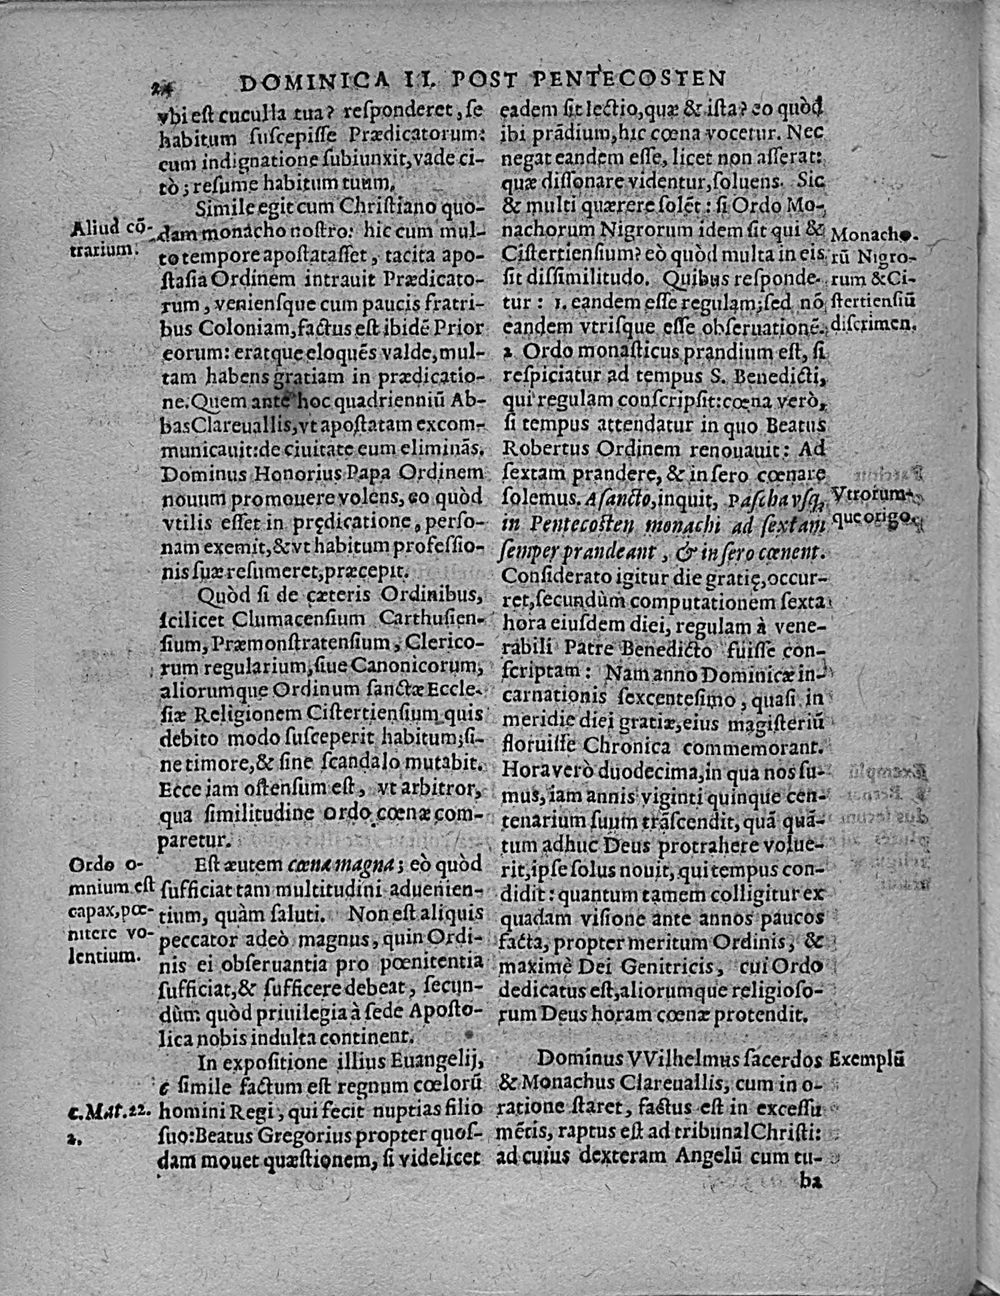 24 DOMINICA II. POST PENTECOSTEN
vbi est cuculla tua? responderet, se
habitum suscepisse Prædicatorum:
cum indignatione subiunxit, vade ci-
tò; resume habitum tuum.
Simile egit cum Christiano quo-
dam monacho nostro: hic cum mul-
to tempore apostatasset, tacita apo-
stasia Ordinem intrauit Prædicato-
rum, veniensque cum paucis fratri-
bus Coloniam, factus est ibidē Prior
eorum: eratque eloquēs valde, mul-
tam habens gratiam in prædicatio-
ne. Quem ante hoc quadrienniū Ab-
bas Clareuallis, vt apostatam excom-
municauit: de ciuitate eum eliminās.
Dominus Honorius Papa Ordinem
nouum promouere volens, eo quòd
vtilis esset in prędicatione, perso-
nam exemit, & vt habitum professio-
nis suæ resumeret, præcepit.
Quòd si de cæteris Ordinibus,
scilicet Clumacensium Carthusien-
sium, Præmonstratensium, Clerico-
rum regularium, siue Canonicorum,
aliorumque Ordinum sanctæ Eccle-
siæ Religionem Cistertiensium quis
debito modo susceperit habitum; si-
ne timore, & sine scandalo mutabit.
Ecce iam ostensum est, vt arbitror,
qua similitudine ordo cœnæ com-
paretur.
Est autem cœna magna; eò quòd
sufficiat tam multitudini aduenien-
tium, quàm saluti. Non est aliquis
peccator adeò magnus, quin Ordi-
nis ei obseruantia pro pœnitentia
sufficiat, & sufficere debeat, secun-
dùm quòd priuilegia à sede Aposto-
lica nobis indulta continent.
In expositione illius Euangelij,
c simile factum est regnum cœlorū
homini Regi, qui fecit nuptias filio
suo: Beatus Gregorius propter quos-
dam mouet quæstionem, si videlicet
Aliud cō-
trarium.
Ordo o-
mnium est
capax, pœ-
nitere vo-
lentium.
c. Mat. 22.
2.
eadem sit lectio, quæ & ista? eo quòd
ibi prādium, hic cœna vocetur. Nec
negat eandem esse, licet non asserat:
quæ dissonare videntur, soluens. Sic
& multi quærere solēt: si Ordo Mo-
nachorum Nigrorum idem sit qui &
Cistertiensium? eò quòd multa in eis
sit dissimilitudo. Quibus responde-
tur: 1. eandem esse regulam; sed nō
eandem vtrisque esse obseruationē.
2 Ordo monasticus prandium est, si
respiciatur ad tempus S. Benedicti,
qui regulam conscripsit: cœna verò,
si tempus attendatur in quo Beatus
Robertus Ordinem renouauit: Ad
sextam prandere, & in sero cœnare
solemus. A sancto, inquit, Pascha vsq,
in Pentecosten monachi ad sextam
semper prandeant, & in sero cœnent.
Considerato igitur die gratię, occur-
ret, secundùm computationem sexta
hora eiusdem diei, regulam à vene-
rabili Patre Benedicto fuisse con-
scriptam: Nam anno Dominicæ in-
carnationis sexcentesimo, quasi in
meridie diei gratiæ, eius magisteriū
floruisse Chronica commemorant.
Hora verò duodecima, in qua nos su-
mus, iam annis viginti quinque cen-
tenarium suum trāscendit, quā quā-
tum adhuc Deus protrahere volue-
rit, ipse solus nouit, qui tempus con-
didit: quantum tamen colligitur ex
quadam visione ante annos paucos
facta, propter meritum Ordinis, &
maximè Dei Genitricis, cui Ordo
dedicatus est, aliorumque religioso-
rum Deus horam cœnæ protendit.
Dominus VVilhelmus sacerdos
& Monachus Clareuallis, cum in o-
ratione staret, factus est in excessu
mētis, raptus est ad tribunal Christi:
ad cuius dexteram Angelū cum tu-
ba
Monacho-
rū Nigro-
rum & Ci-
stertiensiū
discrimen.
Vtrorum-
que origo.
Exemplū